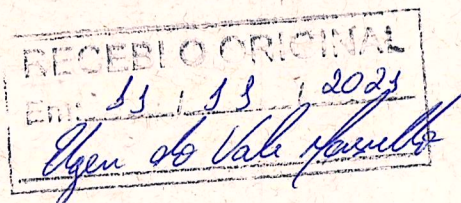 RECEBI O ORIGINAL
Em: 11 / 11 / 2021
do Vale